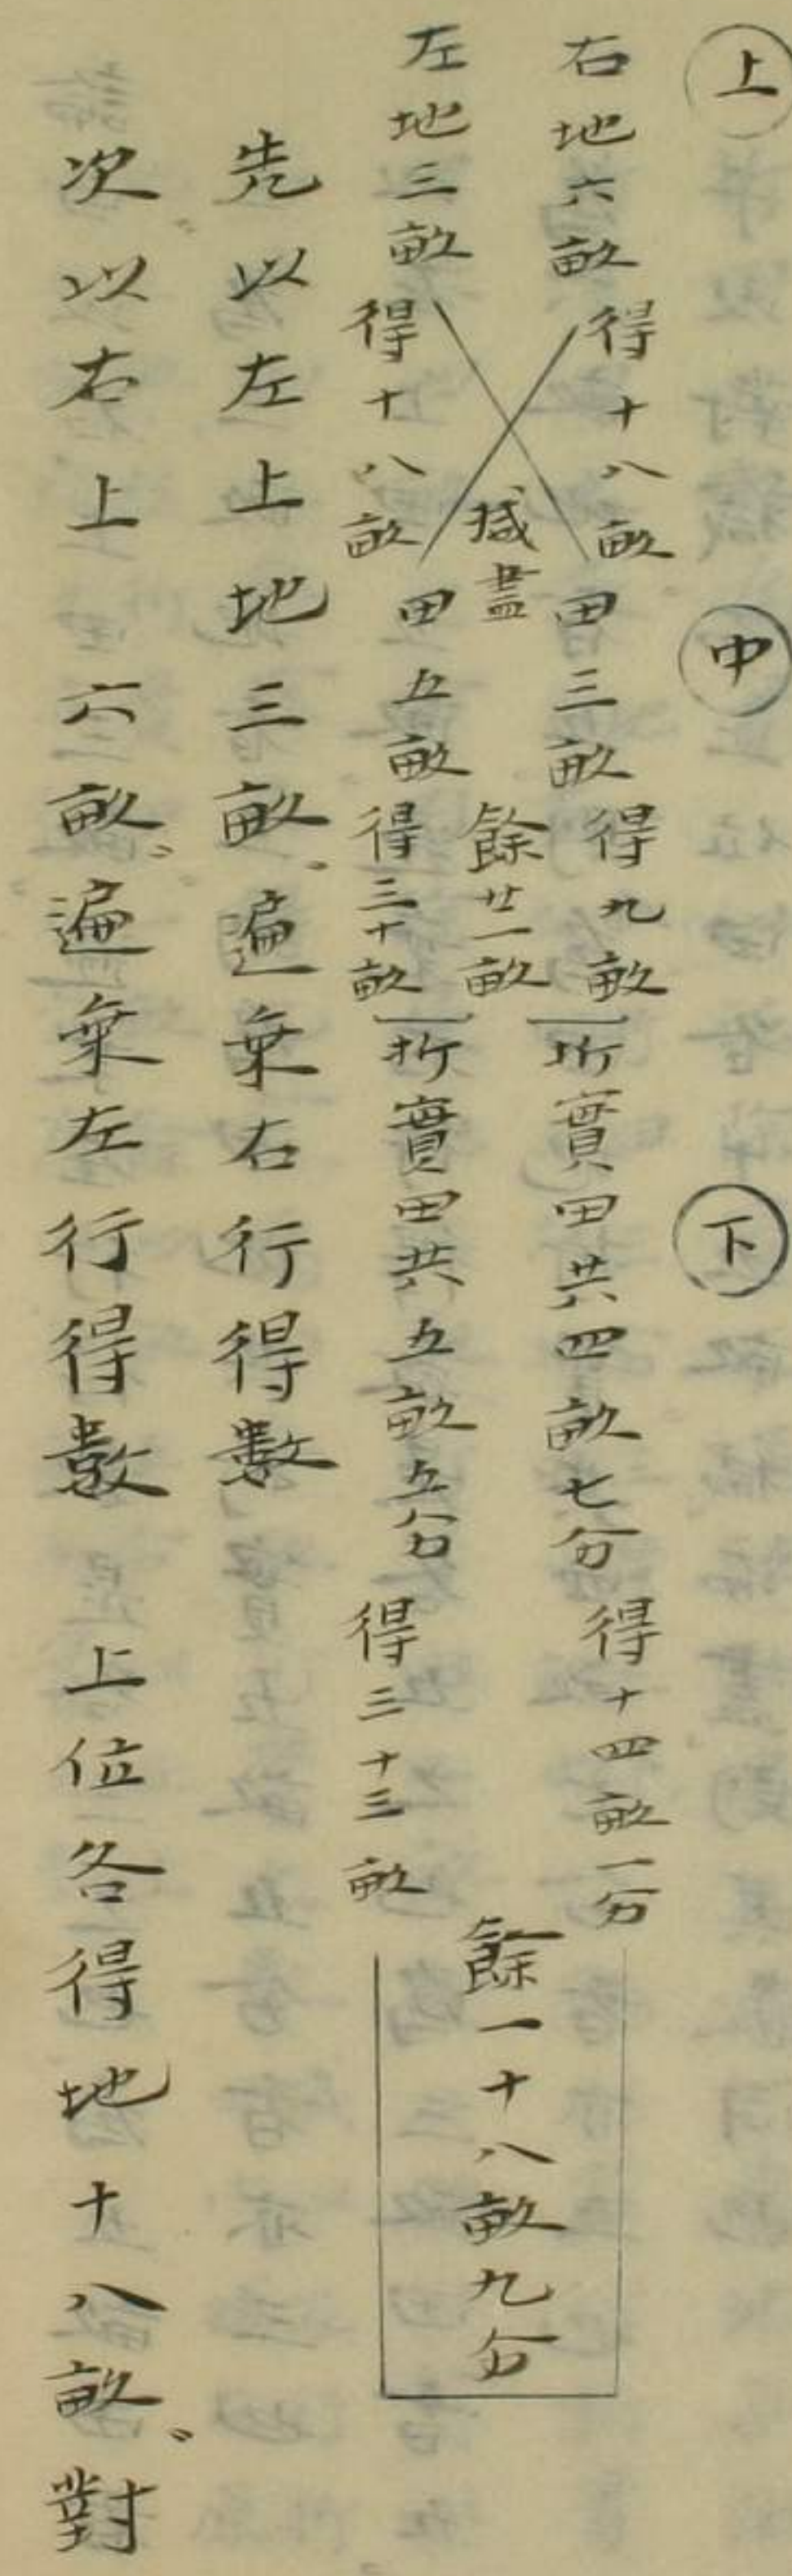 上 中 下
右地六畝 得十八畝 田三畝 得九畝 折實田共四畝七分 得十四畝一分
減盡 餘廿一畝 餘一十八畝九分
左地三畝 得十八畝 田五畝 得三十畝 折實田共五畝五分 得三十三畝
先以左上地三畝遍乗右行得數
次以右上六畝遍乗左行得數 上位各得地十八畝對